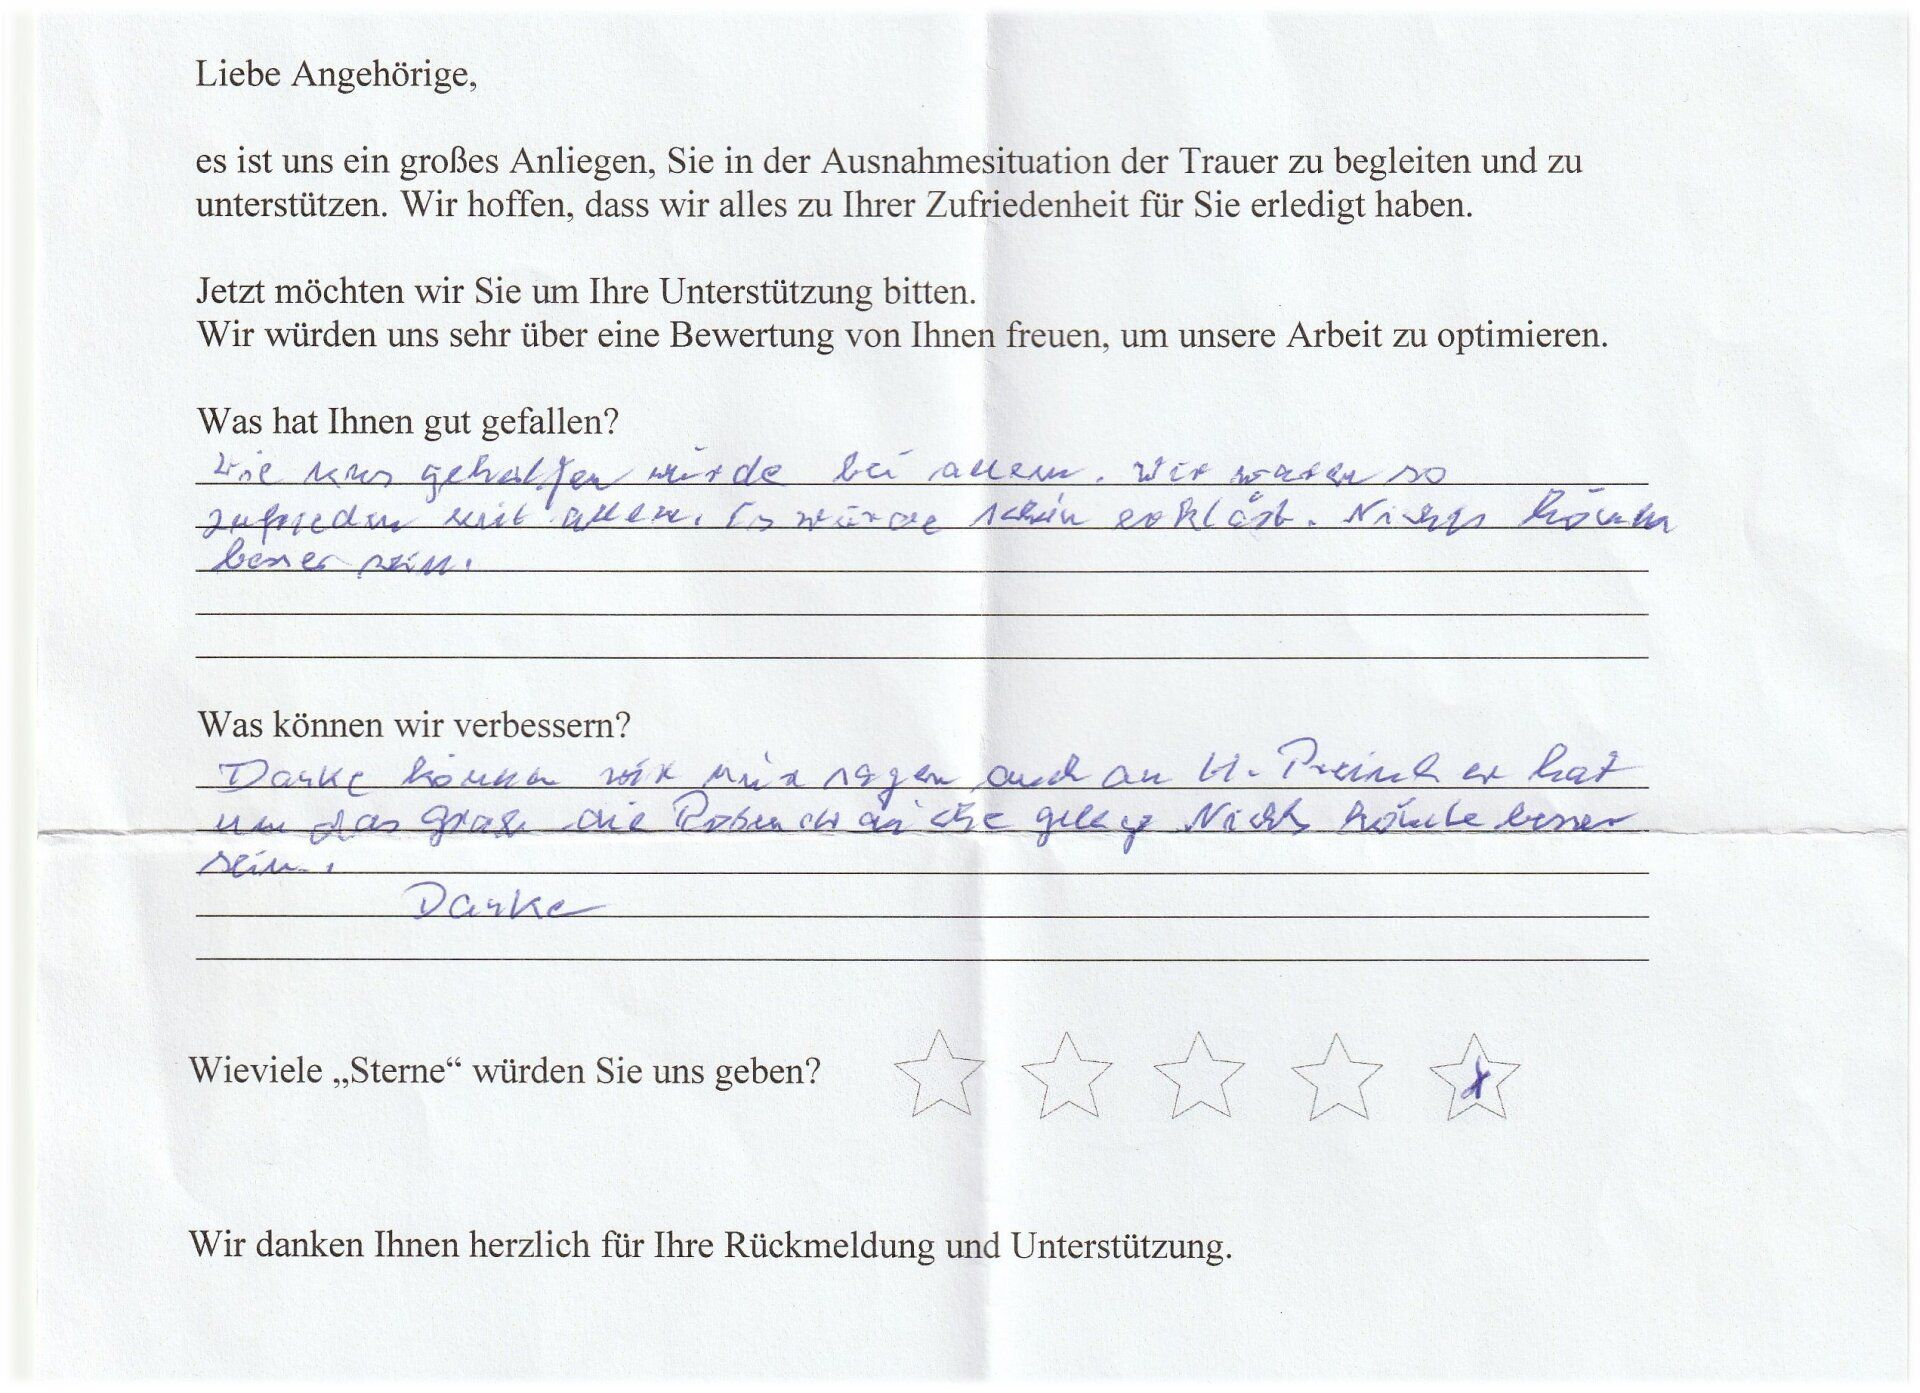 Liebe Angehörige,
es ist uns ein großes Anliegen, Sie in der Ausnahmesituation der Trauer zu begleiten und zu
unterstützen. Wir hoffen, dass wir alles zu Ihrer Zufriedenheit für Sie erledigt haben.
Jetzt möchten wir Sie um Ihre Unterstützung bitten.
Wir würden uns sehr über eine Bewertung von Ihnen freuen, um unsere Arbeit zu optimieren.
Was hat Ihnen gut gefallen?
Wie uns geholfen wurde bei allem. Wir waren so
zufrieden mit allem. Es wurde schön erklärt. Nichts könnte
besser sein.
Was können wir verbessern?
Danke können wir nur sagen auch an H. er hat
um das Grab die gelegt Nichts könnte besser
sein.
Danke
Wieviele „Sterne“ würden Sie uns geben?
x
Wir danken Ihnen herzlich für Ihre Rückmeldung und Unterstützung.